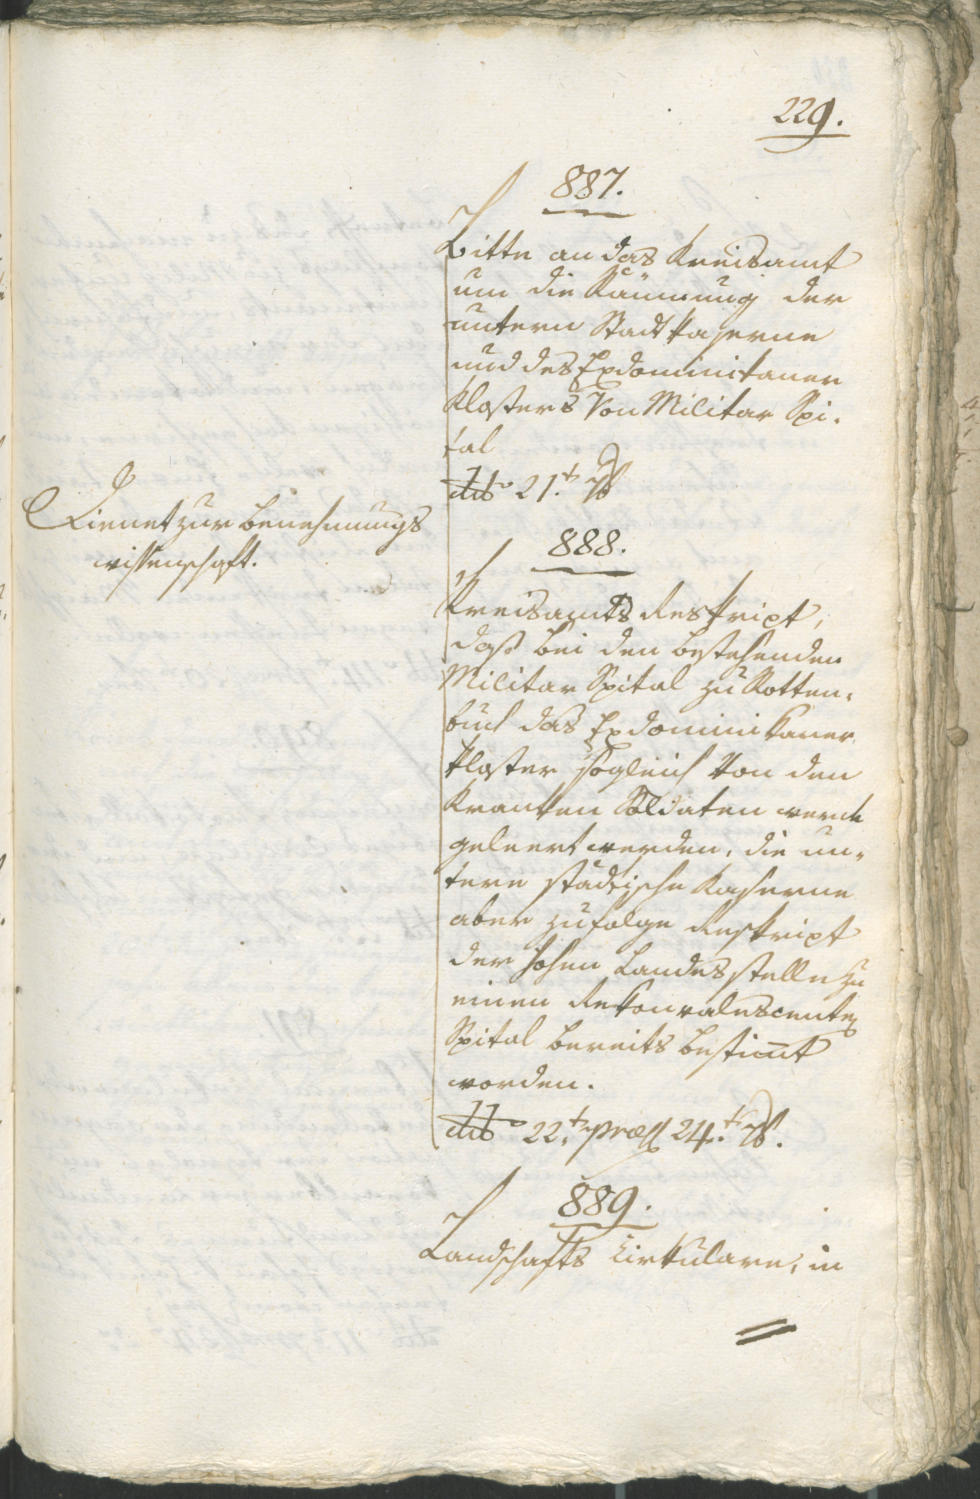 229.
887.
Bitte an das Kreisamt
um die Räumung der
untern Stadtkaserne
und des Exdominikaner
Klosters von Militar Spi-
tal
dto 21.t 7b
Dienet zur Benehmungs
wissenschaft.
888.
Kreisamts Reskript,
daß bei den bestehenden
Militar Spital zu Rotten-
buch das Exdominikaner
kloster sogleich von den
Kranken Soldaten
geleert werden, die un-
tere städtische Kaserne
aber zufolge Reskript
der hohen Landesstelle zu
einen Rekonvalescenten
Spital bereits bestimt
worden.
dto 22.t præs 24.t 7b.
889.
Landschafts Cirkulare, in